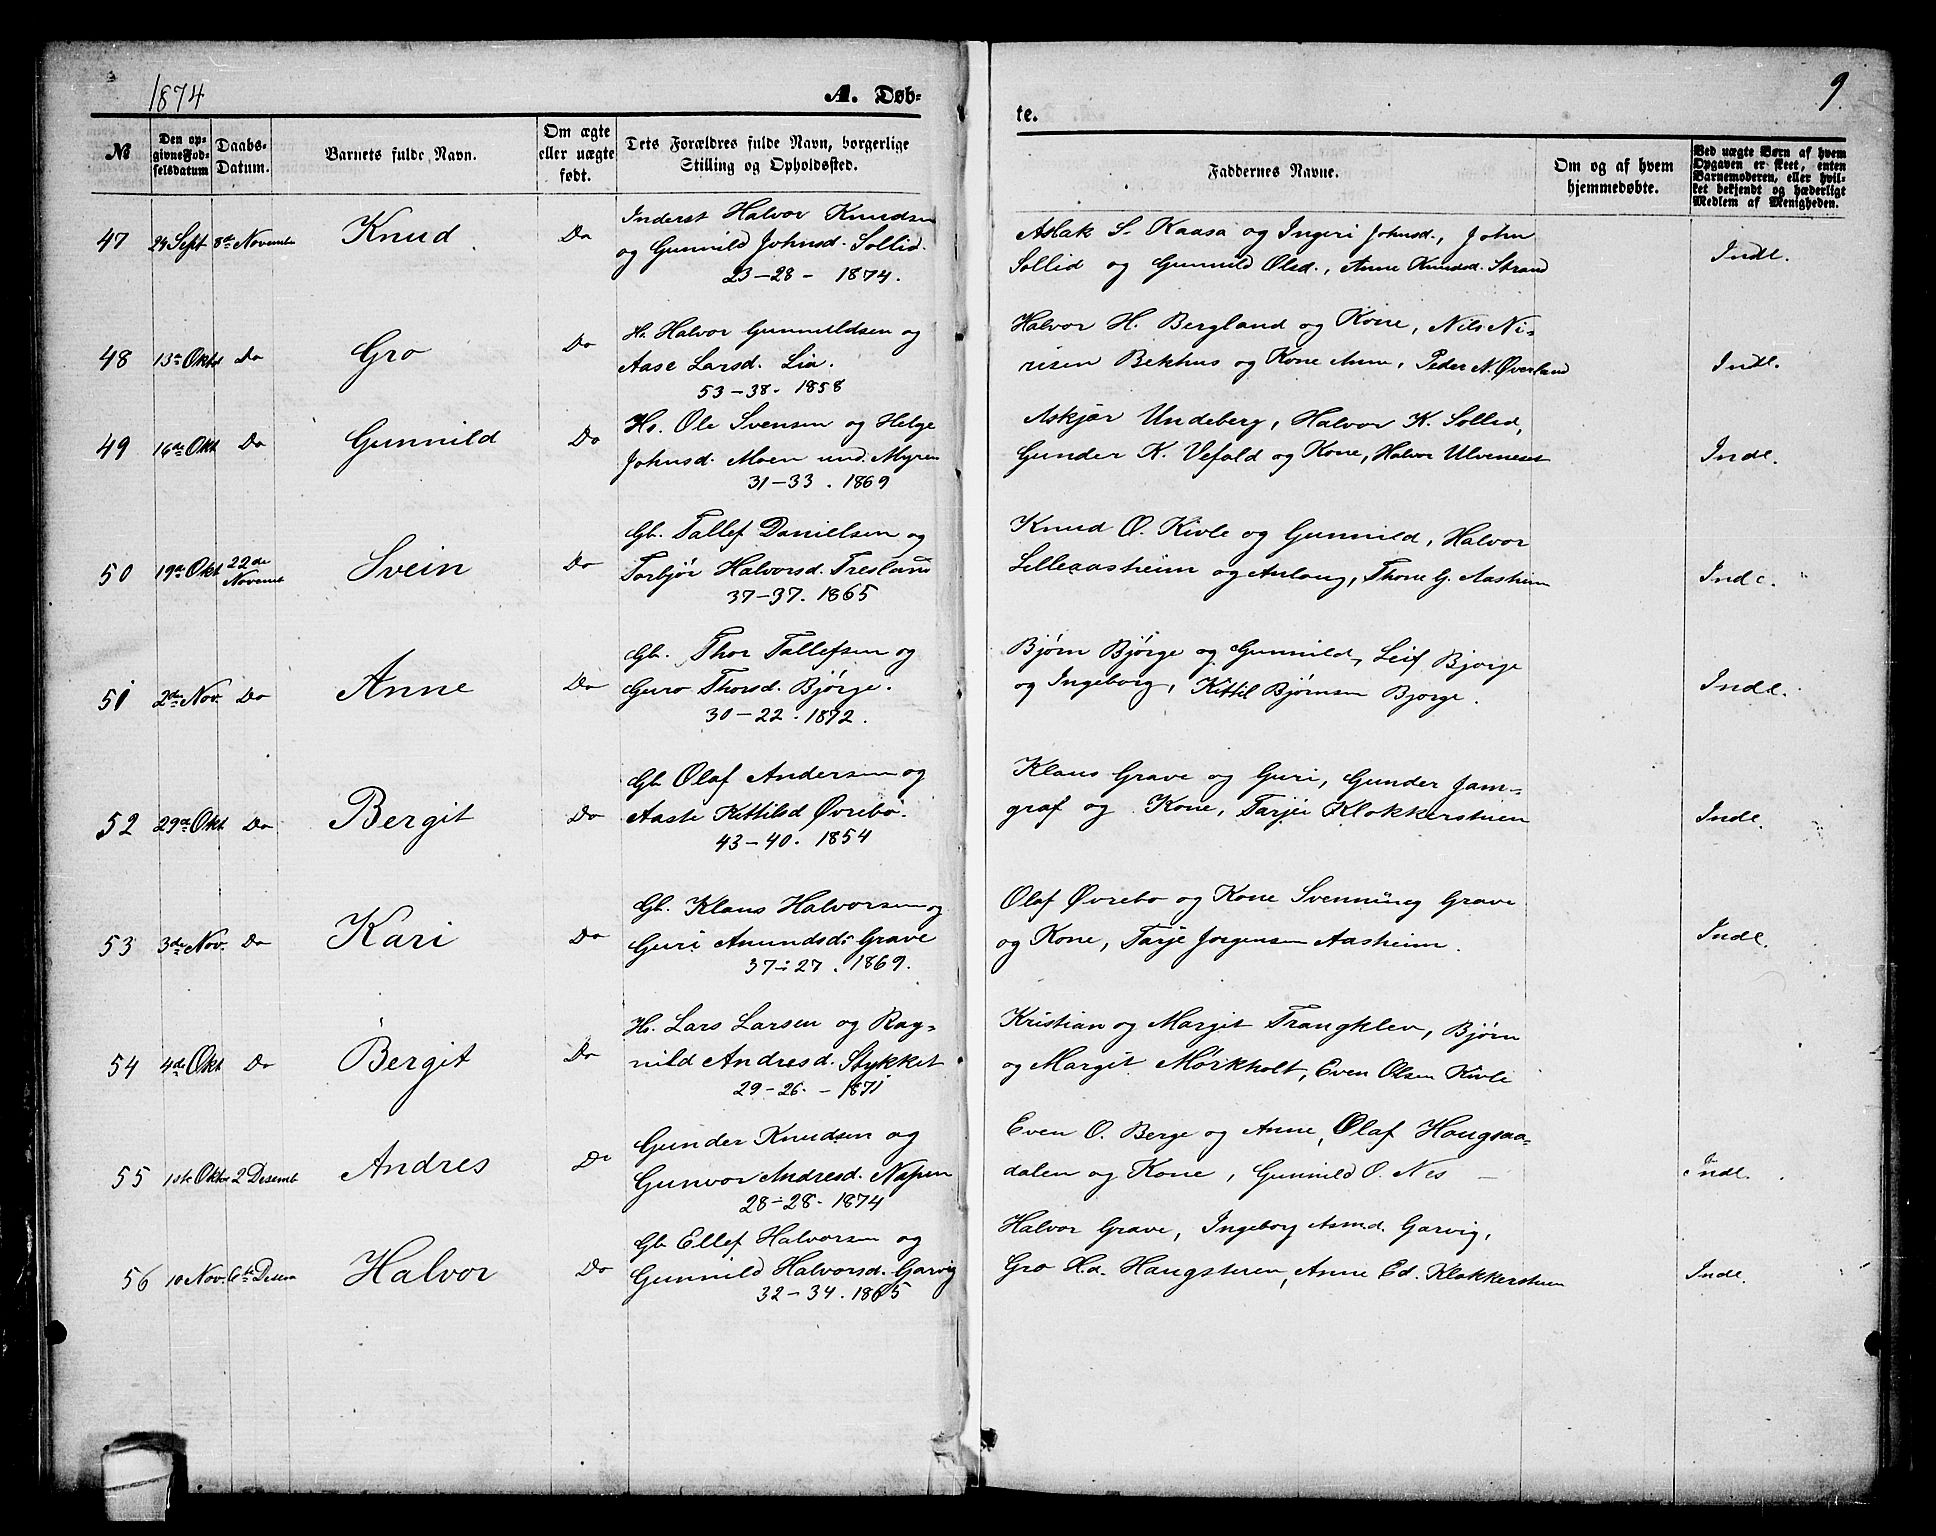 1874
A. Døb-
te.
9.
№
Den op-
givne Fød-
selsdatum
Daabs-
Datum.
Barnets fulde Navn.
Om ægte
eller uægte
født.
Dets Forældres fulde Navn, borgerlige
Stilling og Opholdssted.
Faddernes Navne.
Om og af hvem
hjemmedøbte.
Ved uægte Børn af hvem
Opgaven er skeet, enten
Barnemoderen, eller hvil-
ket bekjendt og hæderligt
Medlem af Menigheden.
47 24 Sept 8de Novembr Knud Do
Inderst Halvor Knudsen
og Gunnild Johnsd. Sollid.
23-28- 1874.
Aslak S. Kaasa og Ingeri Johnsd., John
Sollid og Gunnild Olsd., Anne Knudsd. Strand
Indl.
48 13de Okt Do Gro Do
Hr Halvor Gunnuldsen og
Aase Larsd. Lia.
53-38. 1858
Halvor H. Bergland og Kone, Nils Ni-
risen Bekhus og Kone Anne, Peder N. Øverland
Indl.
49 16de Okt Do Gunnild Do
Hs. Ole Svensen og Helge
Johnsd. Moen und. Myren
31-33. 1869
Askjær Undeberg, Halvor K. Sollid,
Gunder K. Vefald og Kone, Halvor Ulveneset
Indl.
50 19de Okt 22de
Novembr Svein Do
Gb. Tallef Danielsen og
Torbjør Halvorsd. Tresland
37-37. 1865
Knud O. Kivle og Gunnild, Halvor
Lilleaasheim og Anlaug, Thone G. Aasheim
Indl.
51 2de Nov. Do Anne Do
Gb. Thor Tallefsen og
Guro Thorsd. Bjørge.
30-22. 1872.
Bjørn Bjørge og Gunnild, Leif Bjørge
og Ingeborg, Kittil Bjørnsen Bjorge.
Indl.
52 29de Okt Do Bergit Do
Gb. Olaf Andersen og
Aaste Kittilsd Øvrebø.
43-40. 1854
Klaus Grave og Guri, Gunder Jam-
graf og Kone, Tarjei Klokkerstuen
Indl.
53 3de Nov. Do Kari Do
Gb. Klaus Halvorsen og
Guri Amundsd. Grave
37-27. 1869.
Olaf Øvrebø og Kone Svennung Grave
og Kone, Tarje Jorgensen Aasheim.
Indl.
54 4de Okt Do Bergit Do
Hs. Lars Larsen og Rag-
nild Andresd. Stykket
29-26. - 1871
Kristian og Margit Trangklev, Bjørn
og Margit Mørkholt, Even Olsen Kivle
55 1ste Okt 2 Desembr Andres Do
Gunder Knudsen og
Gunvor Andresd. Napen
28-28. 1874
Even O. Berge og Anne, Olaf Haugsaa-
dalen og Kone, Gunnild O. Nes
Indl.
56 10 Nov. 6te Desem Halvor Do
Gb. Ellef Halvorsen og
Gunnild Halvorsd. Garvig
32-34. 1865
Halvor Grave, Ingeborg Asmd. Garvig,
Gro H.d. Haugstuen, Anne Ed. Klokkerstuen
Indl.